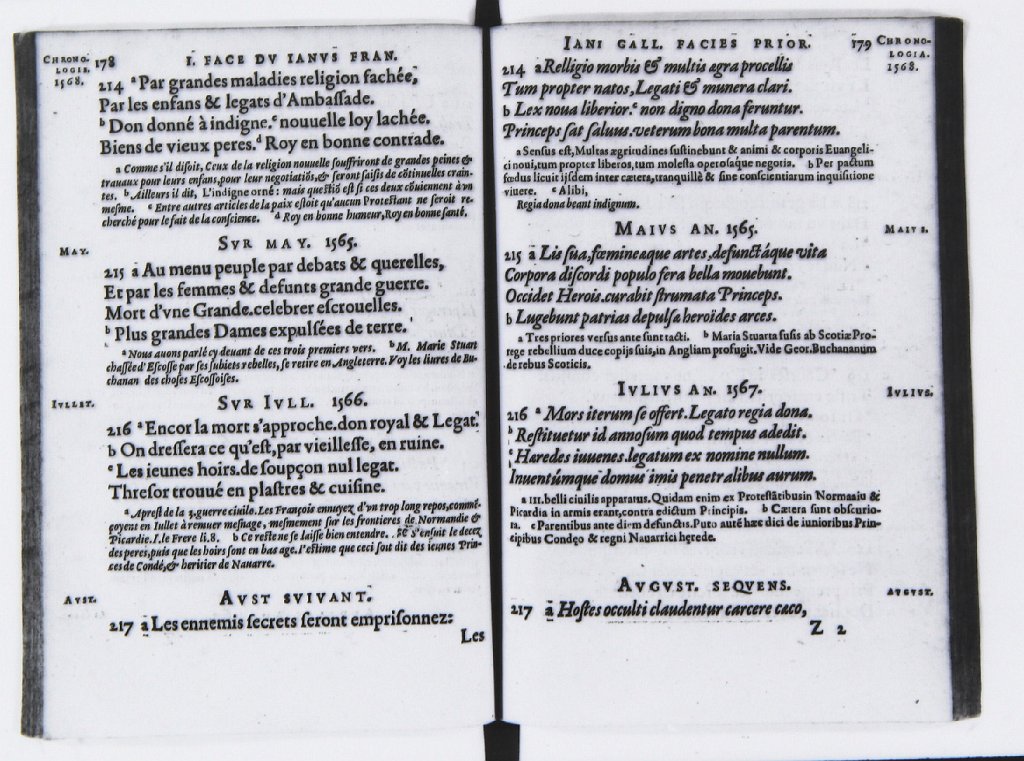 CHRONO-
LOGIE.
1568.
178
I. FACE DV IANVS FRAN.
214 a Par grandes maladies religion fachée,
Par les enfans & legats d'Ambaſſade.
b Don donné à indigne. c nouuelle loy lachée.
Biens de vieux peres. d Roy en bonne contrade.
a Comme s'il diſoit, Ceux de la religion nouuelle ſouffriront de grandes peines &
trauaux pour leurs enfans, pour leur negotiatiõs, & ſeront ſaiſis de cõtinuelles crain-
tes. b Ailleurs il dit, L'indigne orné: mais queſtiõ eſt ſi ces deux cõuiennent à vn
meſme. c Entre autres articles de la paix eſtoit qu'aucun Proteſtant ne ſeroit re-
cherché pour le fait de la conſcience. d Roy en bonne humeur, Roy en bonne ſanté.
MAY.
SVR MAY. 1565.
215 a Au menu peuple par debats & querelles,
Et par les femmes & defunts grande guerre.
Mort d'vne Grande. celebrer eſcrouelles.
b Plus grandes Dames expulſées de terre.
a Nous auons parlé cy deuant de ces trois premiers vers. b M. Marie Stuart
chaſſée d'Eſcoſſe par ſes ſubiets rebelles, ſe retire en Angleterre. Voy les liures de Bu-
chanan des choſes Eſcoſſoiſes.
IVLLET.
SVR IVLL. 1566.
216 a Encor la mort s'approche. don royal & Legat.
b On dreſſera ce qu'eſt, par vieilleſſe, en ruine.
c Les ieunes hoirs. de ſoupçon nul legat.
Threſor trouué en plaſtres & cuiſine.
a Apreſt de la 3. guerre ciuile. Les François ennuyez d'vn trop long repos, commẽ-
çoyent en Iullet à remuer meſnage, meſmement ſur les frontieres de Normandie &
Picardie. I. le Frere li. 8. b Ce reſte ne ſe laiſſe bien entendre. S'enſuit le decez
des peres, puis que les hoirs ſont en bas age. I'eſtime que ceci ſoit dit des ieunes Prin-
ces de Condé, & heritier de Nauarre.
AVST.
AVST SVIVANT.
217 a Les ennemis ſecrets ſeront empriſonnez:
Les
IANI GALL. FACIES PRIOR.
179
CHRONO-
LOGIA.
1568.
214 a Relligio morbis & multis ægra procellis
Tum propter natos, Legati & munera clari.
b Lex noua liberior. c non digno dona feruntur.
Princeps ſat ſaluus. veterum bona multa parentum.
a Senſus eſt, Multas ægritudines ſuſtinebunt & animi & corporis Euangeli-
ci noui, tum propter liberos, tum moleſta operoſaque negotia. b Per pactum
fœdus licuit ijſdem inter cætera, tranquillè & ſine conſcientiarum inquiſitione
viuere. c Alibi,
Regia dona beant indignum.
MAIVS AN. 1565.
MAIVS.
215 a Lis ſua, fœmineaque artes, defunctáque vita
Corpora diſcordi populo fera bella mouebunt.
Occidet Herois. curabit ſtrumata Princeps.
b Lugebunt patrias depulſa heroides arces.
a Tres priores verſus ante ſunt tacti. b Maria Stuarta ſuſis ab Scotiæ Pro-
rege rebellium duce copijs ſuis, in Angliam profugit. Vide Geor. Buchananum
de rebus Scoticis.
IVLIVS AN. 1567.
IVLIVS.
216 a Mors iterum ſe offert. Legato regia dona.
b Reſtituetur id annoſum quod tempus adedit.
c Hæredes iuuenes. legatum ex nomine nullum.
Inuentúmque domus imis penetralibus aurum.
a III. belli ciuilis apparatus. Quidam enim ex Proteſtãtibus in Normania &
Picardia in armis erant, contra edictum Principis. b Cætera ſunt obſcurio-
ra. c Parentibus ante diem defunctis. Puto autẽ hæc dici de iunioribus Prin-
cipibus Condęo & regni Nauarrici hęrede.
AVGVST. SEQVENS.
AVGVST.
217 a Hoſtes occulti claudentur carcere cæco,
Z 2